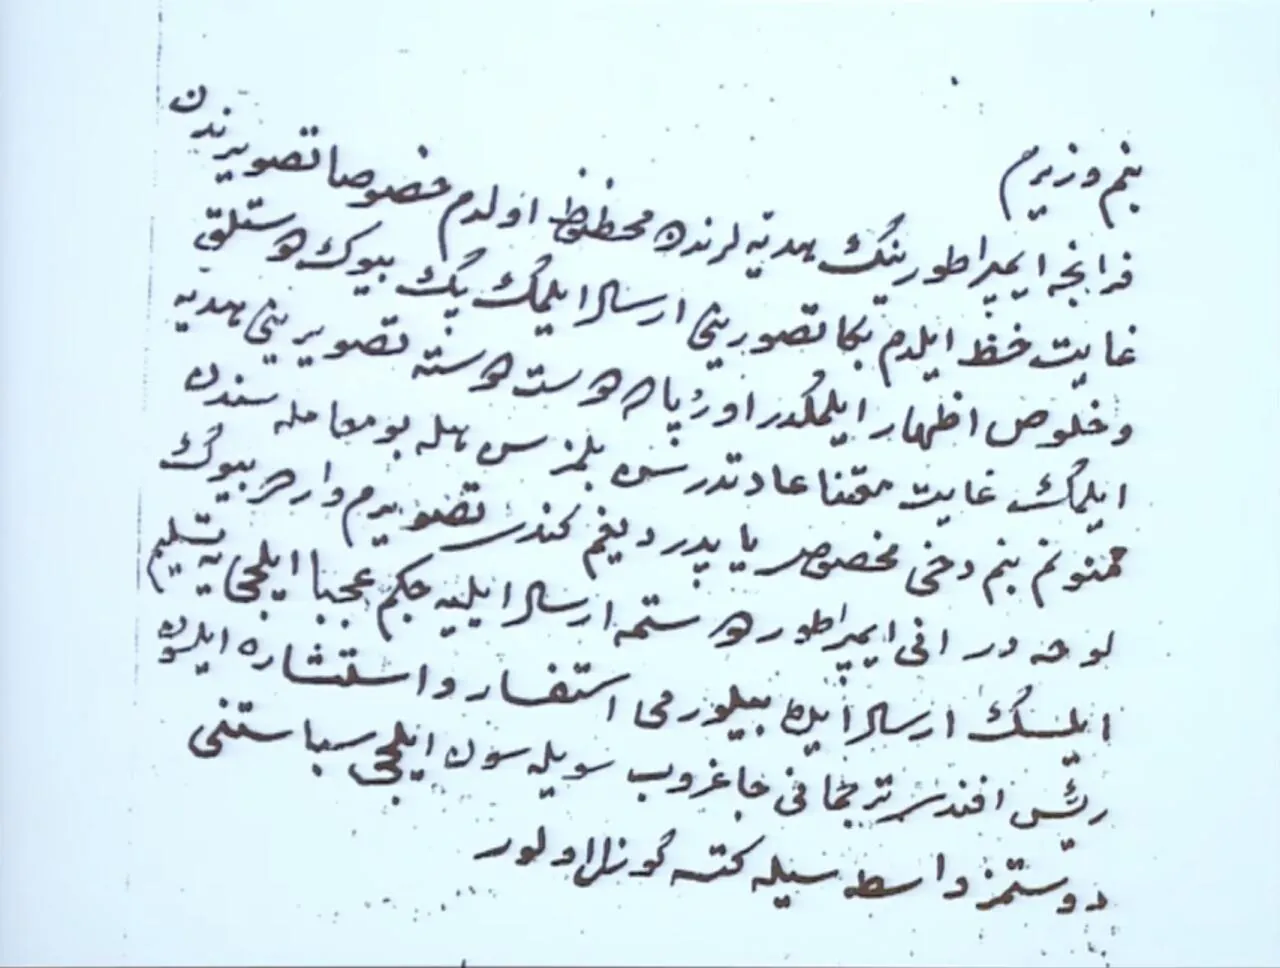 بنم وزيرم
فرانچه ايمپراطورينك هديه لرندن محظوظ اولدم خصوصا تصويرندن
غايت حظ ايلدم بكا تصويرينى ارسال ايلمك پك بيوك دوستلق
و خلوص اظهار ايلمكدر اوروپاده دوست دوسته تصويرينى هديه
ايلمك غايت معتنا عادتدر سن بلمزسن هله بو معامله سندن
ممنونم بنم دخى مخصوص ياپدرديغم كندى تصويرم وار در بيوك
لوحه در انى ايمپراطور دوستمه ارسال ايليه جكم عجبا ايلچى يه تسليم
ايلسك ارسال ايده بيلورمى استفسار و استشاره ايلسون
رئيس افندى ترجمانى چاغروب سويله سون ايلچى سباستنى
دوستمز واسطه سيله كتسه كوزل اولور